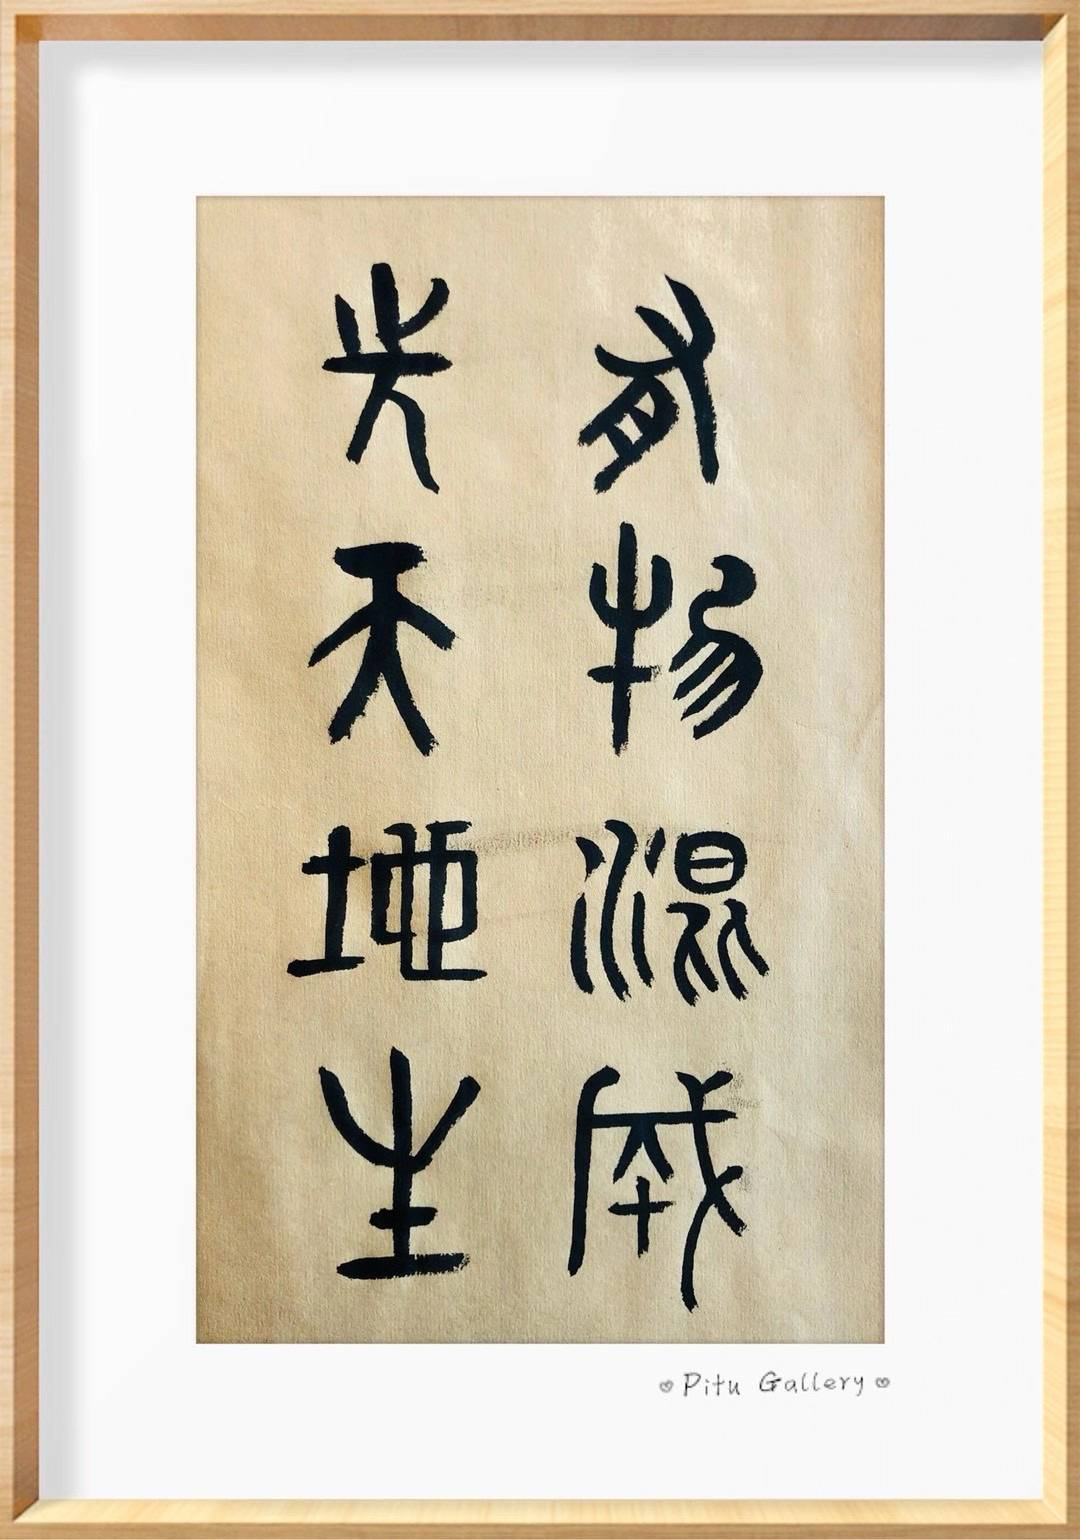 有物混成
先天地生
Pitu Gallery